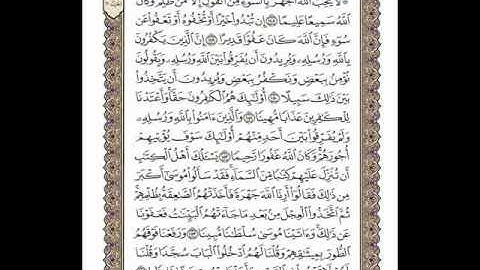 لَّا يُحِبُّ ٱللَّهُ ٱلْجَهْرَ بِٱلسُّوٓءِ مِنَ ٱلْقَوْلِ إِلَّا مَن ظُلِمَ وَكَانَ
ٱللَّهُ سَمِيعًا عَلِيمًا ١٤٨ إِن تُبْدُوا۟ خَيْرًا أَوْ تُخْفُوهُ أَوْ تَعْفُوا۟ عَن
سُوٓءٍ فَإِنَّ ٱللَّهَ كَانَ عَفُوًّا قَدِيرًا ١٤٩ إِنَّ ٱلَّذِينَ يَكْفُرُونَ
بِٱللَّهِ وَرُسُلِهِۦ وَيُرِيدُونَ أَن يُفَرِّقُوا۟ بَيْنَ ٱللَّهِ وَرُسُلِهِۦ وَيَقُولُونَ
نُؤْمِنُ بِبَعْضٍ وَنَكْفُرُ بِبَعْضٍ وَيُرِيدُونَ أَن يَتَّخِذُوا۟
بَيْنَ ذَٰلِكَ سَبِيلًا ١٥٠ أُو۟لَٰٓئِكَ هُمُ ٱلْكَٰفِرُونَ حَقًّا وَأَعْتَدْنَا
لِلْكَٰفِرِينَ عَذَابًا مُّهِينًا ١٥١ وَٱلَّذِينَ ءَامَنُوا۟ بِٱللَّهِ وَرُسُلِهِۦ
وَلَمْ يُفَرِّقُوا۟ بَيْنَ أَحَدٍ مِّنْهُمْ أُو۟لَٰٓئِكَ سَوْفَ يُؤْتِيهِمْ
أُجُورَهُمْ وَكَانَ ٱللَّهُ غَفُورًا رَّحِيمًا ١٥٢ يَسْـَٔلُكَ أَهْلُ ٱلْكِتَٰبِ
أَن تُنَزِّلَ عَلَيْهِمْ كِتَٰبًا مِّنَ ٱلسَّمَآءِ فَقَدْ سَأَلُوا۟ مُوسَىٰٓ أَكْبَرَ
مِن ذَٰلِكَ فَقَالُوٓا۟ أَرِنَا ٱللَّهَ جَهْرَةً فَأَخَذَتْهُمُ ٱلصَّٰعِقَةُ بِظُلْمِهِمْ
ثُمَّ ٱتَّخَذُوا۟ ٱلْعِجْلَ مِنۢ بَعْدِ مَا جَآءَتْهُمُ ٱلْبَيِّنَٰتُ فَعَفَوْنَا
عَن ذَٰلِكَ وَءَاتَيْنَا مُوسَىٰ سُلْطَٰنًا مُّبِينًا ١٥٣ وَرَفَعْنَا فَوْقَهُمُ
ٱلطُّورَ بِمِيثَٰقِهِمْ وَقُلْنَا لَهُمُ ٱدْخُلُوا۟ ٱلْبَابَ سُجَّدًا وَقُلْنَا